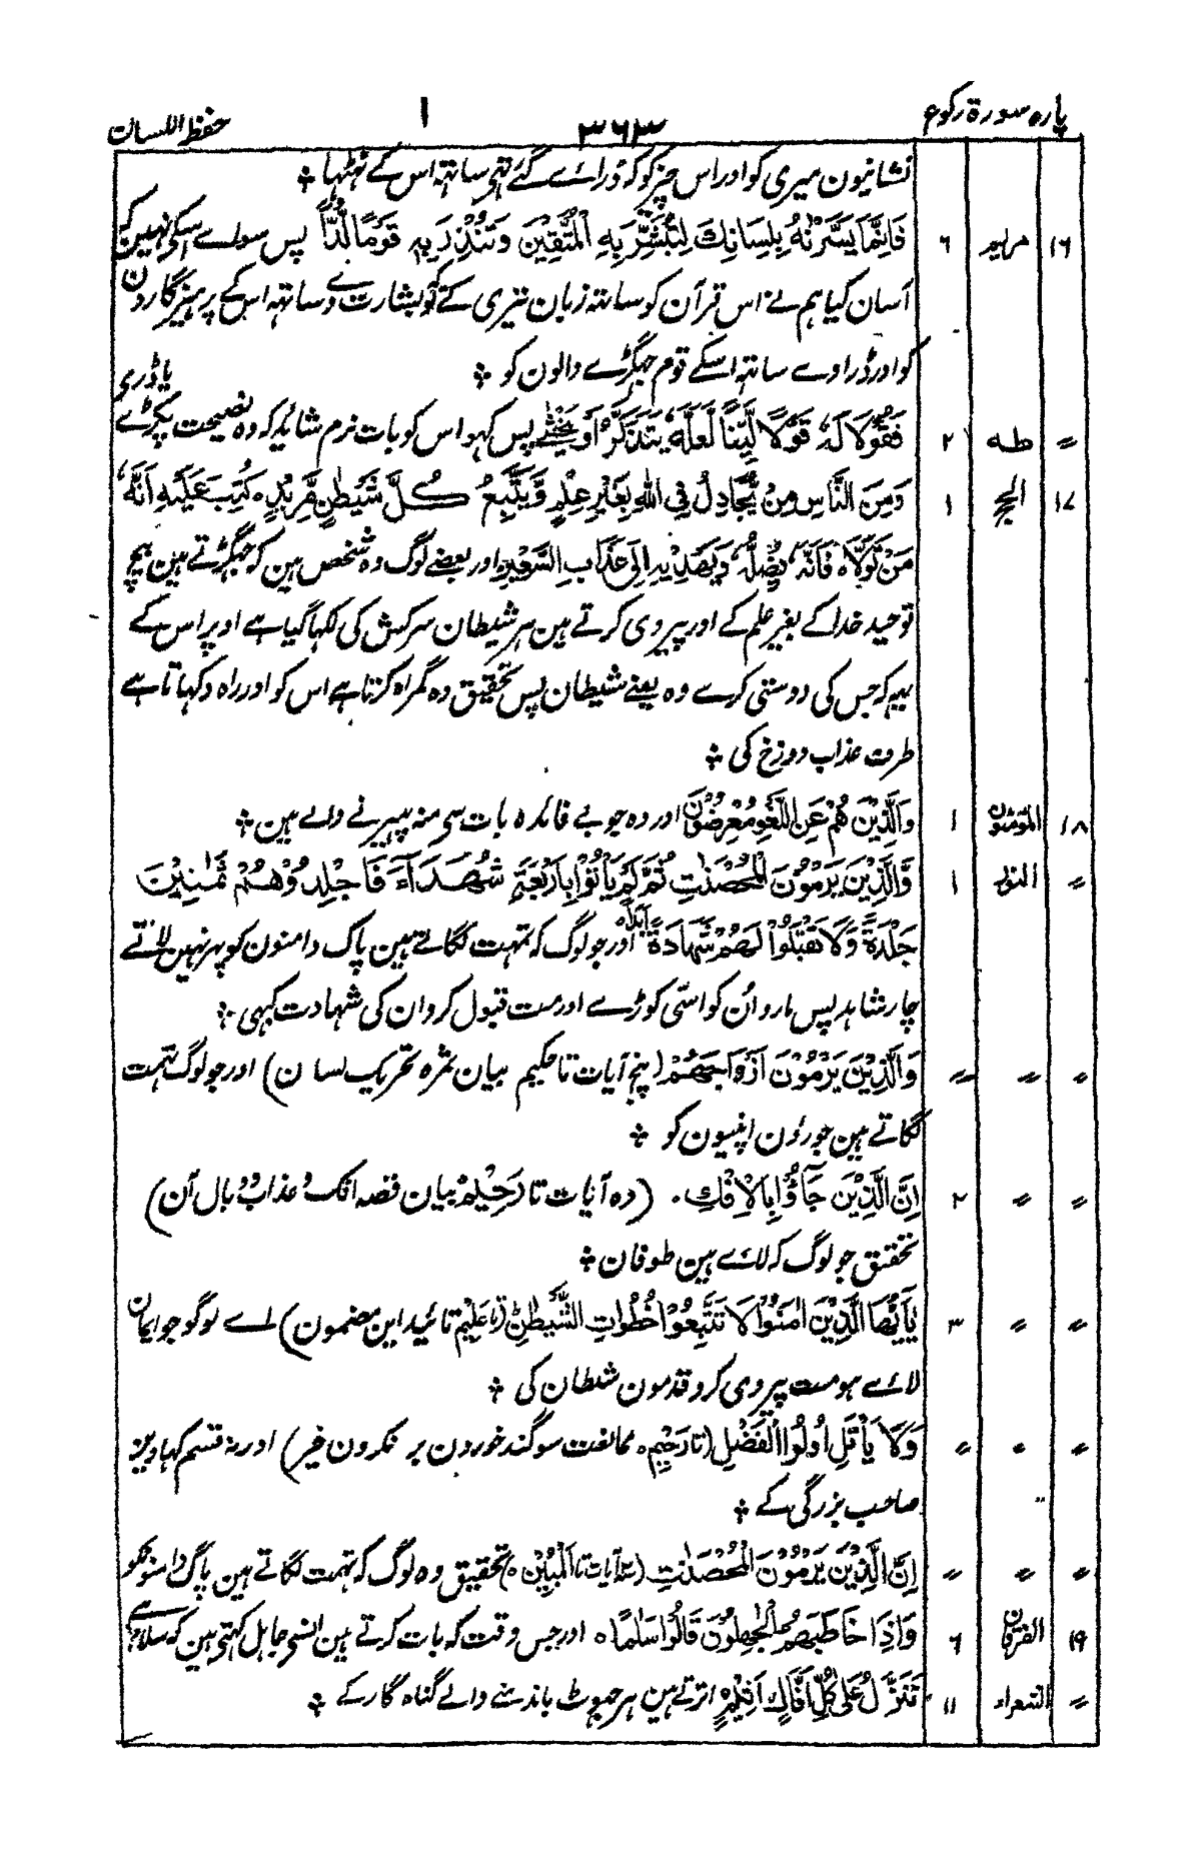 پارہ سورۃ رکوع ۳۶۳ ا حفظ اللسان
نشانیون میری کو اور اس چیز کو کہ ڈرائے گئے تہی ساتہہ اس کے ٹہٹھا ؞
۱۶ مریم ۶ فَاِنَّمَا یَسَّرْنٰهُ بِلِسَانِكَ لِتُبَشِّرَ بِهِ الْمُتَّقِیْنَ وَتُنْذِرَ بِهٖ قَوْمًا لُّدًّا پس سوائے اسکی نہین کہ
آسان کیا ہم نے اس قرآن کو ساتہہ زبان تیری کے تو بشارت دے ساتہہ اس کے پرہیزگارون
کو اور ڈراوے ساتہہ اسکے قوم جہگڑے والون کو ؞
〃 طہ ۲ فَقُوْلَا لَهٗ قَوْلًا لَّیِّنًا لَّعَلَّهٗ یَتَذَكَّرُ اَوْ یَخْشٰی پس کہو اس کو بات نرم شائد کہ وہ نصیحت پکڑے یا ڈری
۱۷ الحج ۱ وَمِنَ النَّاسِ مَنْ یُّجَادِلُ فِی اللّٰهِ بِغَیْرِ عِلْمٍ وَّیَتَّبِعُ كُلَّ شَیْطٰنٍ مَّرِیْدٍ ہ كُتِبَ عَلَیْهِ اَنَّهٗ
مَنْ تَوَلَّاهُ فَاَنَّهٗ یُضِلُّهٗ وَیَهْدِیْهِ اِلٰی عَذَابِ السَّعِیْرِ اور بعضے لوگ وہ شخص ہین کہ جہگڑتے ہین بیچ
توحید خدا کے بغیر علم کے اور پیروی کرتے ہین ہر شیطان سرکش کی لکہا گیا ہے اوپر اس کے
یہہ کہ جس کی دوستی کرے وہ یعنے شیطان پس تحقیق وہ گمراہ کرتا ہے اس کو اور راہ دکہاتا ہے
طرف عذاب دوزخ کی ؞
۱۸ المؤمنون ۱ وَالَّذِیْنَ هُمْ عَنِ اللَّغْوِ مُعْرِضُوْنَ اور وہ جو بے فائدہ بات سی منہ پہیرنے والے ہین ؞
〃 النور ۱ وَالَّذِیْنَ یَرْمُوْنَ الْمُحْصَنٰتِ ثُمَّ لَمْ یَاْتُوْا بِاَرْبَعَةِ شُهَدَآءَ فَاجْلِدُوْهُمْ ثَمٰنِیْنَ
جَلْدَةً وَّلَا تَقْبَلُوْا لَهُمْ شَهَادَةً اَبَدًا ہ اور جو لوگ کہ تہمت لگاتے ہین پاک دامنون کو پہر نہین لاتے
چار شاہد پس مارو اُن کو اسّی کوڑے اور مت قبول کرو ان کی شہادت کبہی ؞
〃 〃 〃 وَالَّذِیْنَ یَرْمُوْنَ اَزْوَاجَهُمْ (پنج آیات تا حکیم بیان ثمرہ تحریک لسان) اور جو لوگ تہمت
لگاتے ہین جورئون اپنیون کو ؞
〃 〃 ۲ اِنَّ الَّذِیْنَ جَآؤُا بِالْاِفْكِ ۔ (دہ آیات تا رَحِیْمٌ بیان قصہ افک و عذاب وبال آن)
تحقیق جو لوگ کہ لائے ہین طوفان ؞
〃 〃 ۳ یٰاَیُّهَا الَّذِیْنَ اٰمَنُوْا لَا تَتَّبِعُوْا خُطُوٰتِ الشَّیْطٰنِ (تا عَلِیْم تائید این مضمون) اے لوگو جو ایمان
لائے ہو مت پیروی کرو قدمون شیطان کی ؞
〃 〃 〃 وَلَا یَاْتَلِ اُولُوا الْفَضْلِ (تا رَحِیْمٌ ہ ممانعت سوگند خوردن بر نکرون خیر) اور نہ قسم کہاوین
صاحب بزرگی کے ؞
〃 〃 〃 اِنَّ الَّذِیْنَ یَرْمُوْنَ الْمُحْصَنٰتِ (آیات تا الْمُبِیْنُ ہ) تحقیق وہ لوگ کہ تہمت لگاتے ہین پاک دامنونکو
۱۹ الفرقان ۶ وَاِذَا خَاطَبَهُمُ الْجٰهِلُوْنَ قَالُوْا سَلٰمًا ہ اور جس وقت کہ بات کرتے ہین انسی جاہل کہتی ہین کہ سلام ہے
〃 الشعراء ۱۱ تَنَزَّلُ عَلٰی كُلِّ اَفَّاكٍ اَثِیْمٍ ہ اترتے ہین ہر جہوٹ باندہنے والے گناہ گار کے ؞